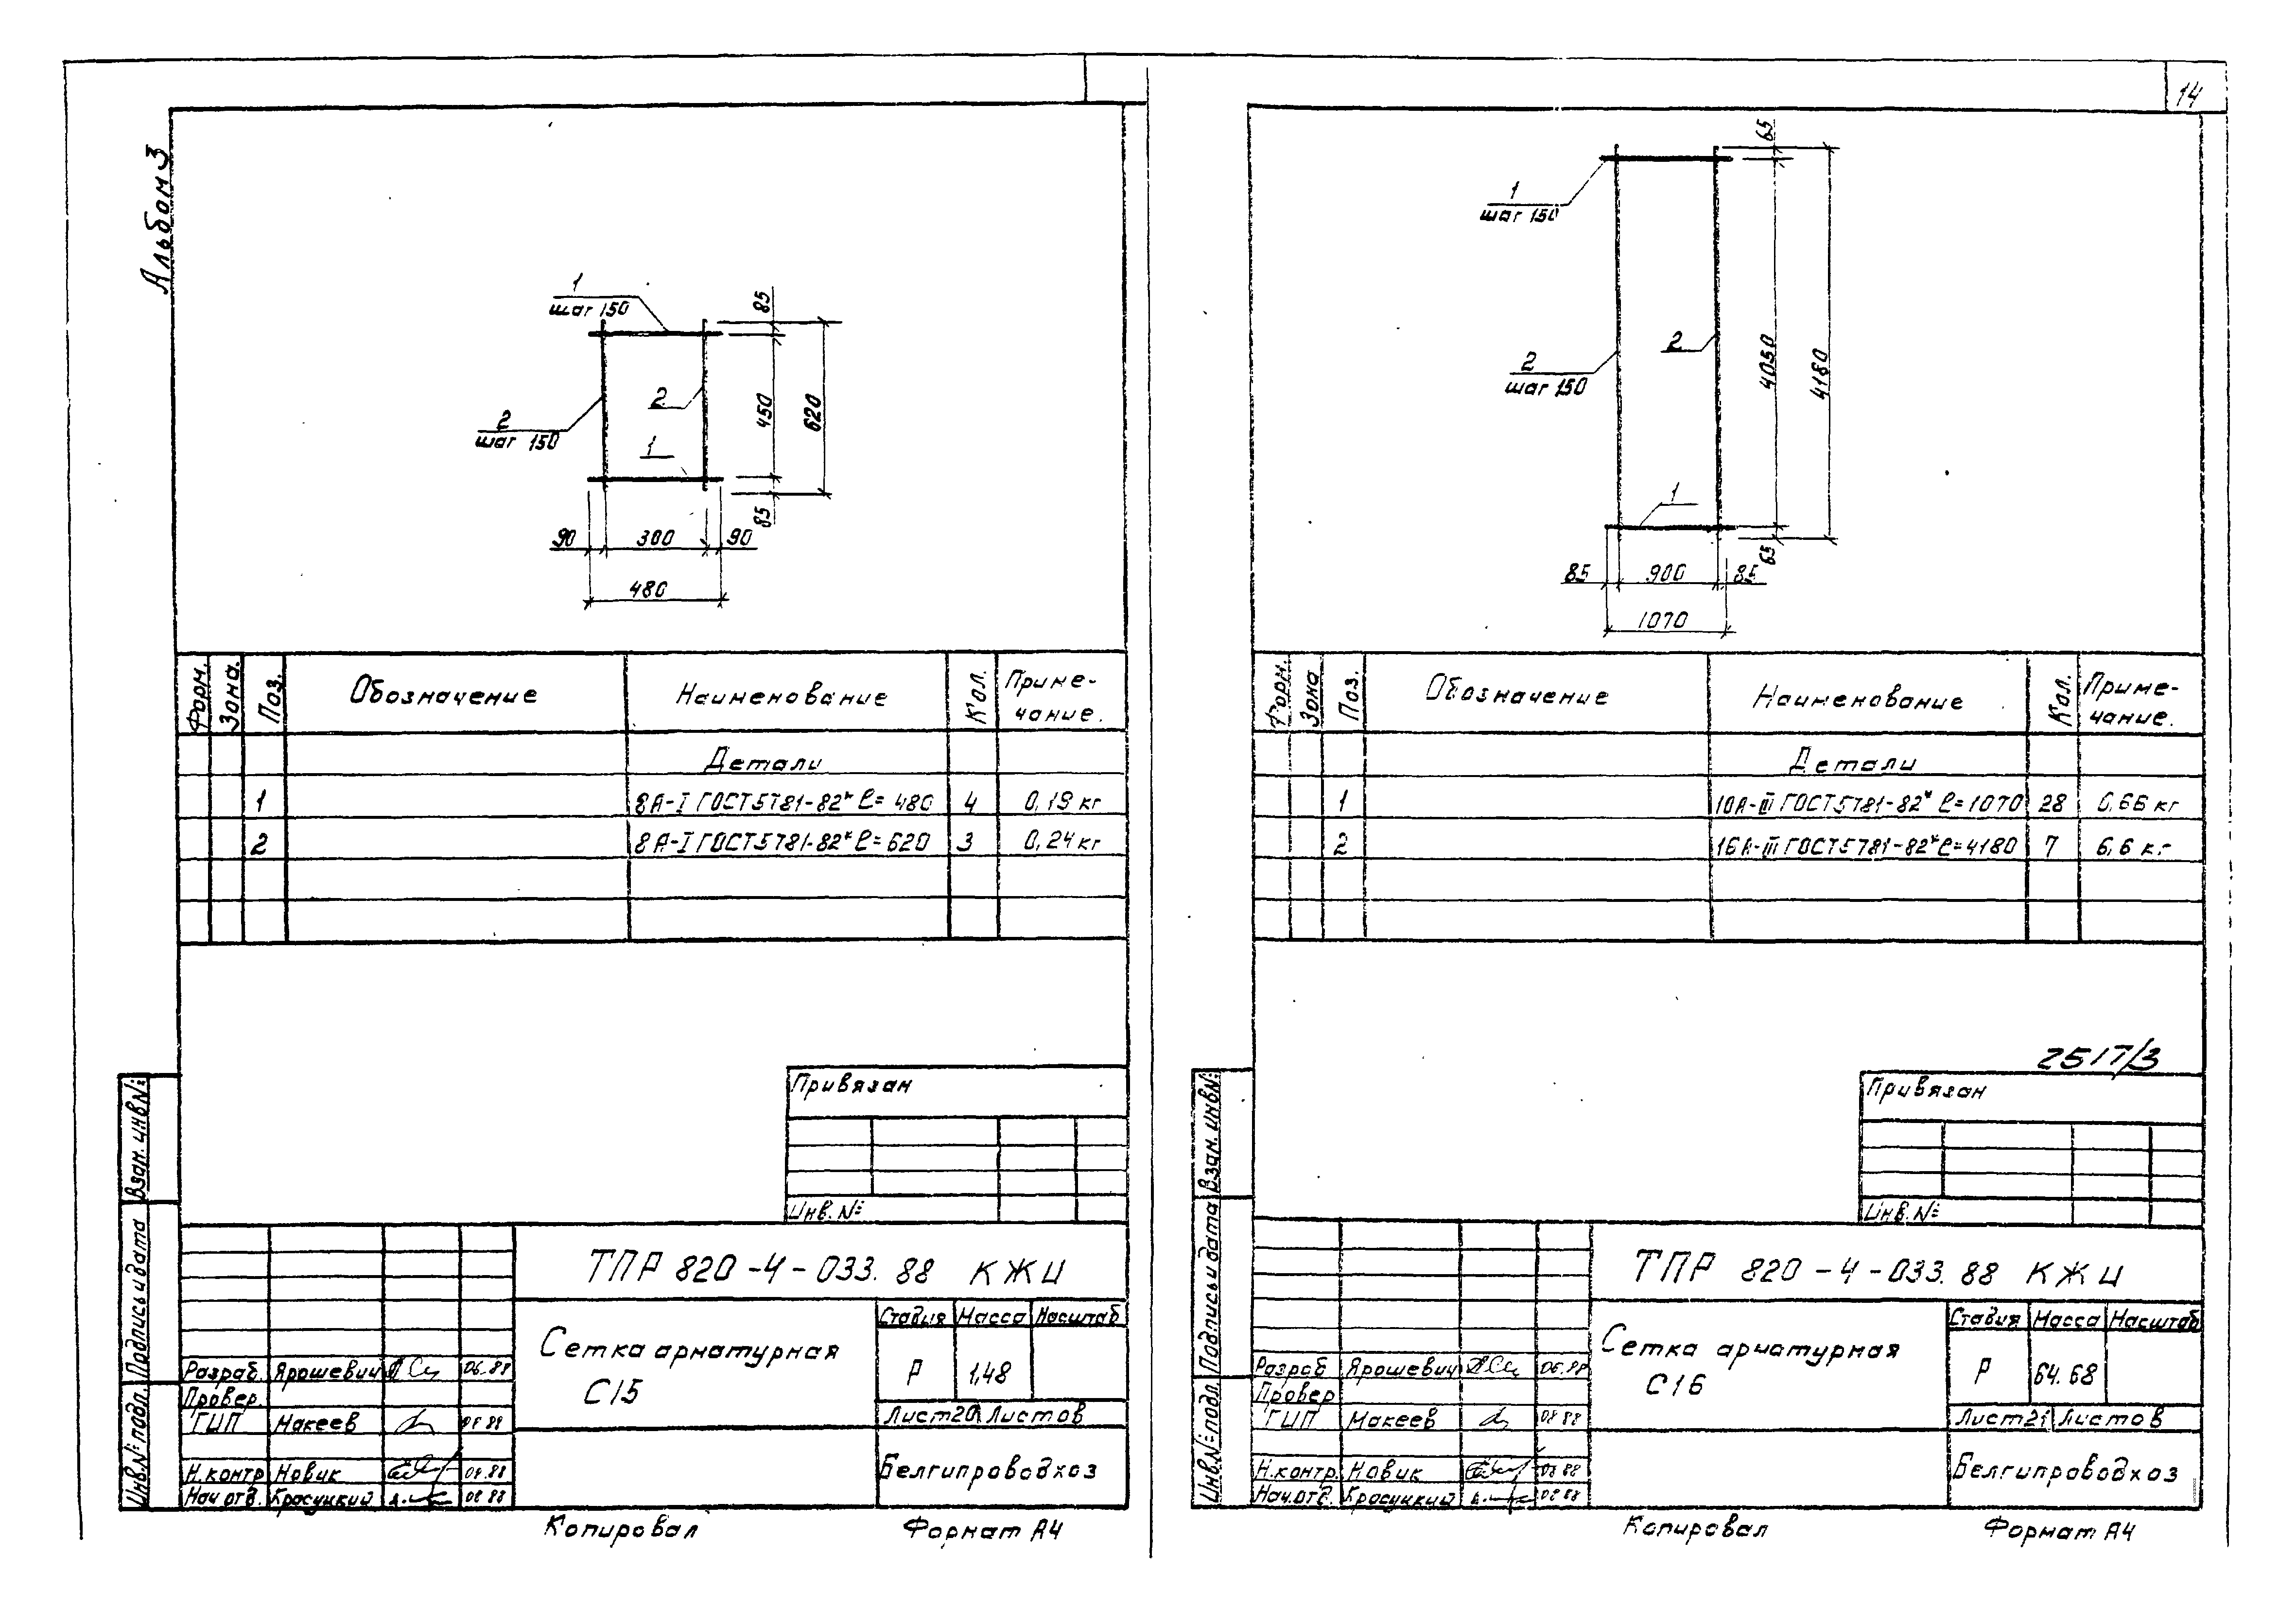 Альбом 3
1
шаг 150
2
шаг 150
2
1
85
450
620
85
90 300 90
480
Форм. Зона. Поз. Обозначение Наименование Кол. Приме-
чание.
Детали
1 8А-I ГОСТ 5781-82* ℓ= 480 4 0,19 кг
2 8А-I ГОСТ 5781-82* ℓ= 620 3 0,24 кг
Привязан
Инв.№
ТПР 820-4-033.88 КЖИ
Сетка арматурная
С15
Стадия Масса Масштаб
Р 1,48
Лист 20 Листов
Белгипроводхоз
Разраб. Ярошевич 06.88
Провер.
ГИП Макеев 08.88
Н.контр. Новик 08.88
Нач.отд. Красуцкий 08.88
Взам. инв.№
Подпись и дата
Инв.№ подл.
Копировал Формат А4
14
1
шаг 150
2
шаг 150
2
1
65
4050
4180
65
85 900 85
1070
Форм. Зона Поз. Обозначение Наименование Кол. Приме-
чание.
Детали
1 10А-III ГОСТ 5781-82* ℓ=1070 28 0,66 кг
2 16А-III ГОСТ 5781-82* ℓ=4180 7 6,6 кг
2517/3
Привязан
Инв.№
ТПР 820-4-033.88 КЖИ
Сетка арматурная
С16
Стадия Масса Масштаб
Р 64.68
Лист 21 Листов
Белгипроводхоз
Разраб Ярошевич 06.88
Провер
ГИП Макеев 08.88
Н.контр. Новик 08.88
Нач.отд. Красуцкий 08.88
Взам. инв.№
Подпись и дата
Инв.№ подл.
Копировал Формат А4